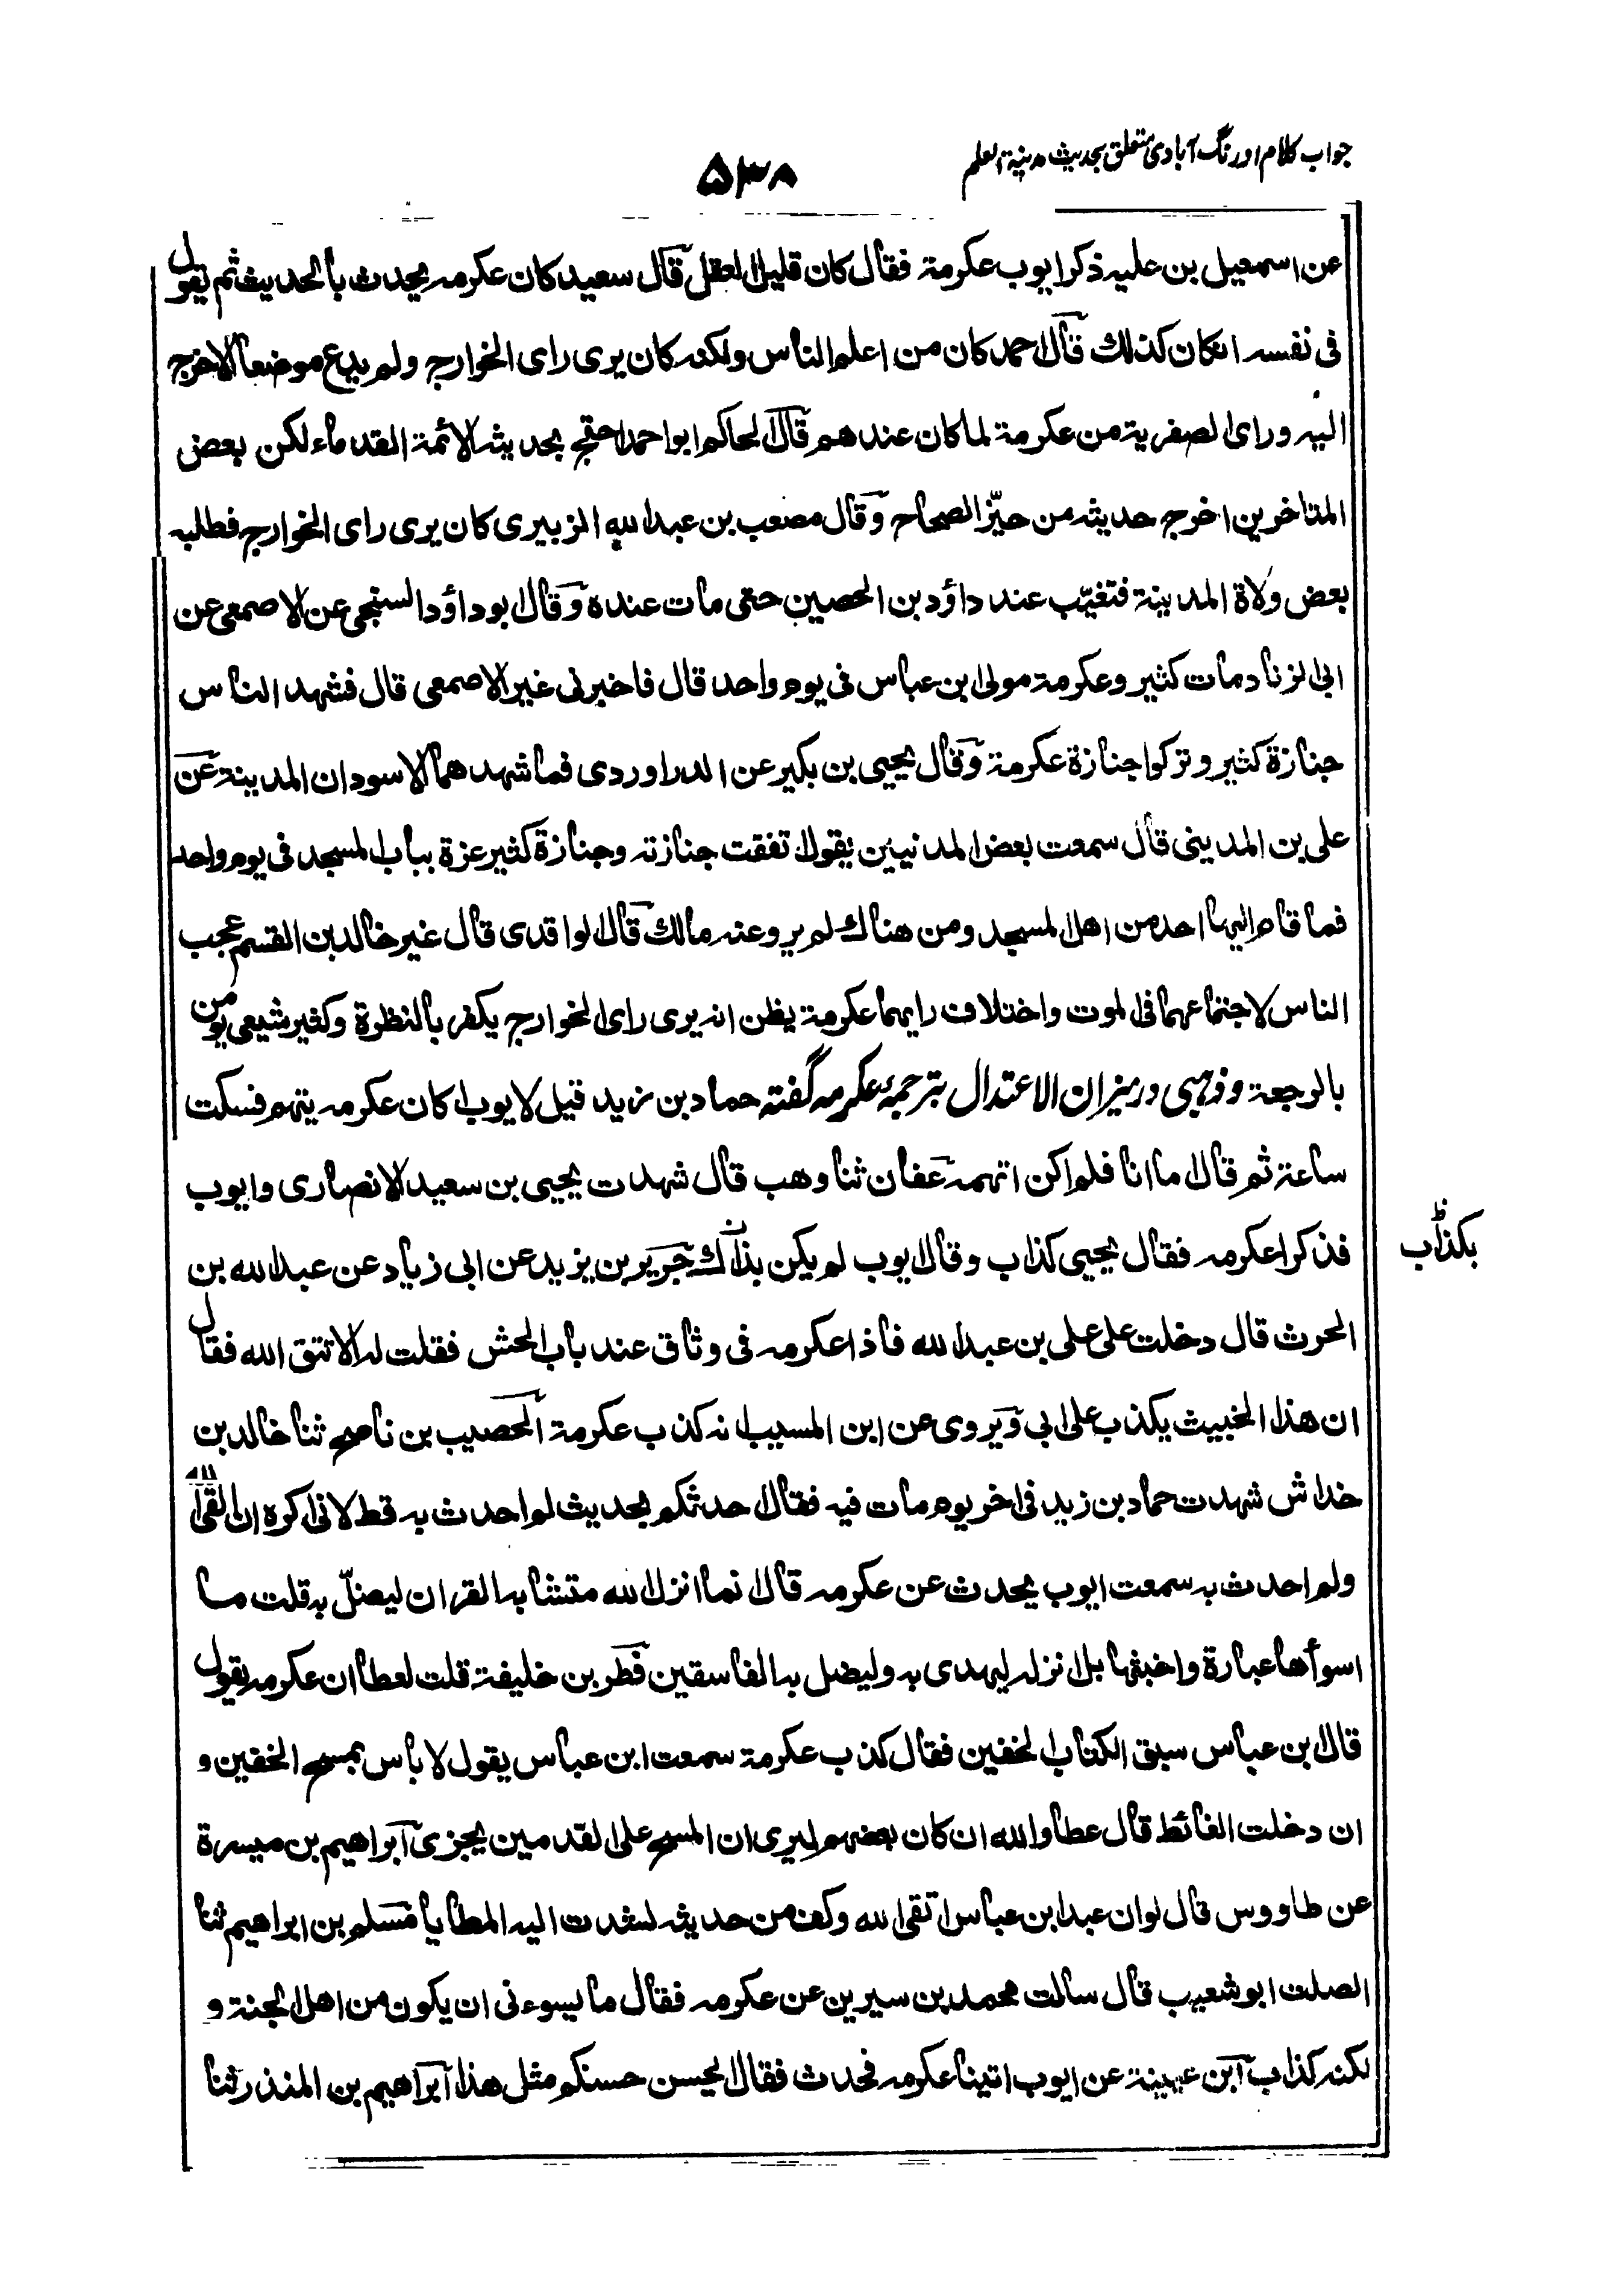 جواب کلام اورنگ آبادی متعلق بحدیث مدینة العلم
۵۳۸
عن اسمعیل بن علیه ذکر ایوب عکرمة فقال کان قلیل العقل قال سعید کان عکرمه یحدث بالحدیث ثم یقول
فی نفسه انکان کذلك قال احمد کان من اعلم الناس ولکنه کان یری رای الخوارج ولم یدع موضعا الا خرج
الیه ورای الصفریة من عکرمة لما کان عندهم قال الحاکم ابو احمد احتج بحدیثه الائمة القدماء لکن بعض
المتاخرین اخرج حدیثه من حیّز الصحاح وقال مصعب بن عبد الله الزبیری کان یری رای الخوارج فطلبه
بعض ولاة المدینة فتغیّب عند داؤد بن الحصین حتی مات عنده وقال ابو داؤد السنجی عن الاصمعی عن
ابی الزناد مات کثیر وعکرمة مولی ابن عباس فی یوم واحد قال فاخبرنی غیر الاصمعی قال فشهد الناس
جنازة کثیر وترکوا جنازة عکرمة وقال یحیی بن بکیر عن الدراوردی فما شهدهما الا سودان المدینة عن
علی بن المدینی قال سمعت بعض المدنیین یقول تفقت جنازته وجنازة کثیر عزة بباب المسجد فی یوم واحد
فما قام الیها احد من اهل المسجد ومن هناك لم یرو عنه مالك قال الواقدی قال غیر خالد بن القسم عجب
الناس لاجتماعهما فی الموت واختلاف رایهما عکرمة یظن انه یری رای الخوارج یکفر بالنظرة وکثیر شیعی یومن
بالرجعة وذهبی در میزان الاعتدال بترجمهٔ عکرمه گفته حماد بن زید قیل لایوب اکان عکرمه یتهم فسکت
ساعة ثم قال اما انا فلم اکن اتهمه عفان ثنا وهب قال شهدت یحیی بن سعید الانصاری وایوب
فذکرا عکرمه فقال یحیی کذاب وقال ایوب لم یکن بذاك جریر بن یزید عن ابی زیاد عن عبد الله بن
بکذّاب
الحرث قال دخلت علی علی بن عبد الله فاذا عکرمه فی وثاق عند باب الحش فقلت له الا تتق الله فقال
ان هذا الخبیث یکذب علی ابی ویروی عن ابن المسیب انه کذب عکرمة الحصیب بن ناصح ثنا خالد بن
خداش شهدت حماد بن زید فی اخر یوم مات فیه فقال احدثکم بحدیث لم احدث به قط لانی اکره ان القی الله
ولم احدث به سمعت ایوب یحدث عن عکرمه قال انما انزل الله متشابه القران لیضلّ به قلت ما
اسوأها عبارة واخبثها بل انزله لیهدی به ولیضل به الفاسقین فطر بن خلیفة قلت لعطا ان عکرمه یقول
قال ابن عباس سبق الکتاب الخفین فقال کذب عکرمة سمعت ابن عباس یقول لا باس بمسح الخفین و
ان دخلت الغائط قال عطا والله ان کان بعضهم لیری ان المسح علی القدمین یجزی ابراهیم بن میسرة
عن طاووس قال لو ان عبد ابن عباس اتقی الله وکف من حدیثه لشدت الیه المطایا مسلم بن ابراهیم ثنا
الصلت ابو شعیب قال سالت محمد بن سیرین عن عکرمه فقال ما یسوءنی ان یکون من اهل الجنة و
لکنه کذاب ابن عیینة عن ایوب اتینا عکرمه فحدث فقال الحسن حسنکم مثل هذا ابراهیم بن المنذر ثنا